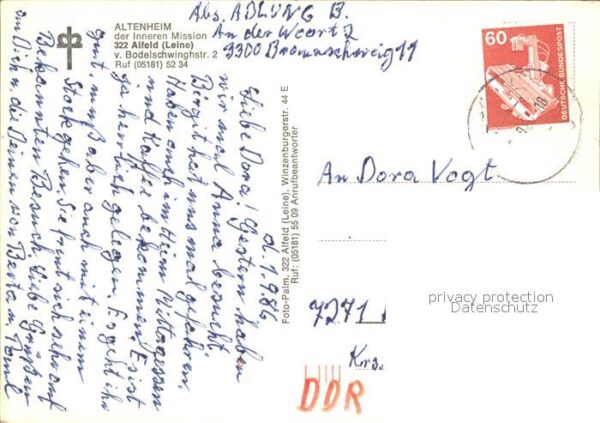 ALTENHEIM
der Inneren Mission
322 Alfeld (Leine)
v. Bodelschwinghstr. 2
Ruf (05181) 52 34
Abs. ADLUNG B.
An der Woort 2
3300 Braunschweig 11
60
DEUTSCHE BUNDESPOST
d. 1.9 86
Liebe Dora! Gestern haben
wir mal Anna besucht
Birgit hat uns mal gefahren.
Haben auch im Heim Mittagessen
und Kaffee bekommen. Es ist
ja herrlich gelegen. Es geht ihr
gut, muß aber auch mit einem
Stock gehen. Sie freut sich sehr auf
Bekannten Besuch. Liebe Grüße
an Dich u. die Deinen von Berta u.
Foto-Palm, 322 Alfeld (Leine), Winzenburgerstr. 44 E
Ruf: (05181) 55 09 Anrufbeantworter
An Dora Vogt
7271
Krs.
DDR
privacy protection
Datenschutz